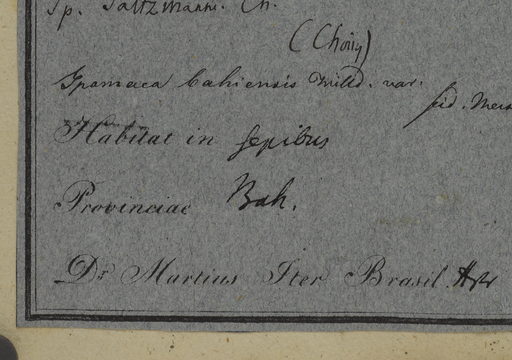 Sp. Saltzmanni. Ch.
(Choisy)
Ipomaea bahiensis Willd. var.
fid. Meis
Habitat in sepibus
Provinciae Bah.
Dr Martius Iter Brasil.